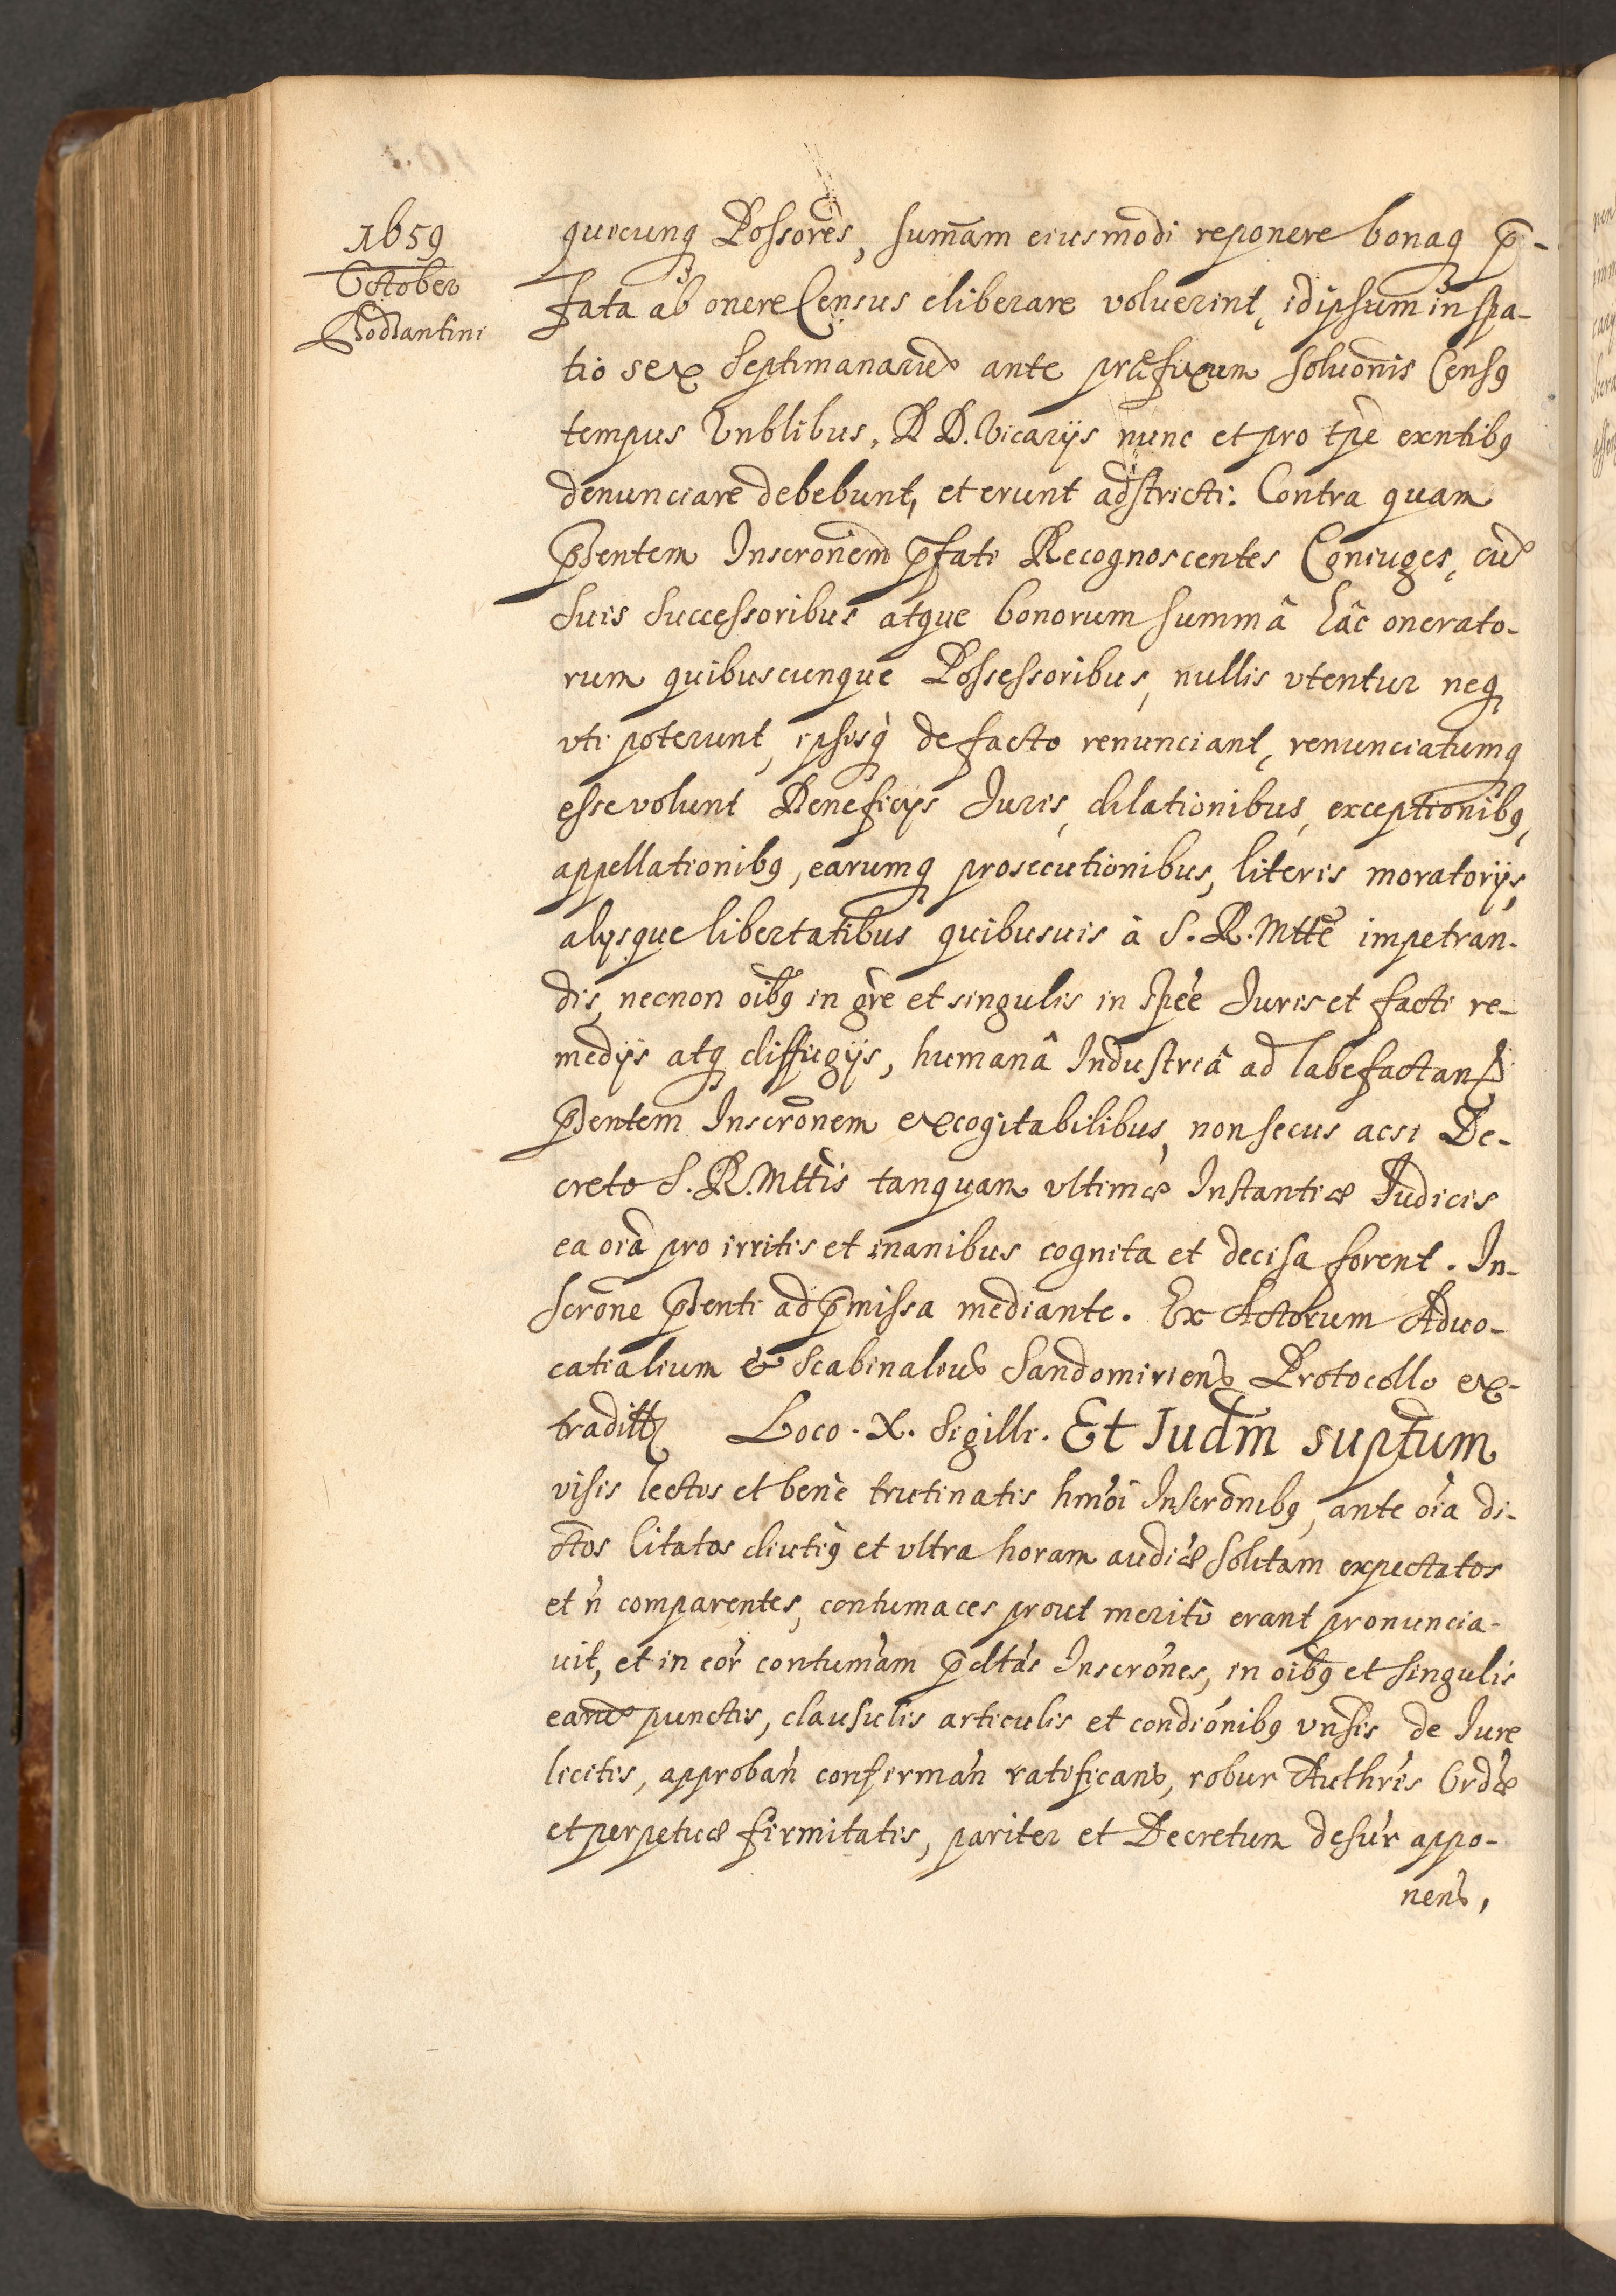 1659
October
Bodzantini
quicunq Possores, sum̄am eiusmodi reponere bonaq p̄-
fata ab onere Census eliberare voluerint, idipsum in spa-
tio sex Septimanarū ante præfixum Soluōnis Censq
tempus Vnblibus, R D. Vicarijs nunc et pro tp̄e exntibq
denunciare debebunt, et erunt adstricti. Contra quam
p̄sentem Inscrōnem p̄fati Recognoscentes Coniuges, cū
suis Successoribus atque bonorum summâ hâc onerato-
rum quibuscunque Possessoribus, nullis vtentur neq
vti poterunt, ipsisq de facto renunciant, renunciatumq
esse volunt Beneficijs Iuris, dilationibus, exceptionibq,
appellationibq, earumq prosecutionibus, literis moratorijs,
alijsque libertatibus quibusuis à S. R. Mtte impetran-
dis, necnon oibq in gre et singulis in spēe Iuris et facti re-
medijs atq diffugijs, humanâ Industriâ ad labefactand
p̄sentem Inscrōnem excogitabilibus, non secus acsi De-
creto S. R. Mttis tanquam vltimæ Instantiæ Iudicis
ea oia pro irritis et inanibus cognita et decisa forent. In-
scrōne p̄senti ad p̄missa mediante. Ex Actorum Aduo-
catialium & Scabinaliū Sandomiriens Protocollo ex-
tradit
Loco. X. Sigilli. Et Iudm̄ suptum
visis lectis et benè trutinatis hm̄oi Inscrōnibq, ante oia di-
ctos Citatos diutiq et vltra horam audiæ Solitam expectatos
et ǹ comparentes, contumaces prout meritò erant pronuncia-
uit, et in eor contumam p̄cltas Inscrōnes, in oibq et singulis
earū punctis, clausulis articulis et condiōnibq vnsis de Iure
licitis, approban confirman ratificans, robur Authris Ordæ
et perpetuæ firmitatis, pariter et Decretum desur appo-
nens,